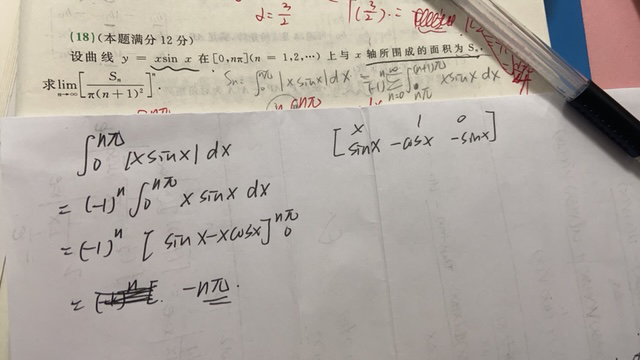 α = 3/2
Γ(3/2).=
(18)(本题满分 12 分)
设曲线 y = xsin x 在[0,nπ](n = 1,2,…)上与 x 轴所围成的面积为 Sₙ,
求lim n→∞ [Sₙ/π(n+1)²]ⁿ.
Sn = ∫₀^nπ |xsinx| dx
∫₀^nπ |xsinx| dx
= (-1)ⁿ ∫₀^nπ x sinx dx
= (-1)ⁿ [ sinx-xcosx]₀^nπ
= -nπ.
[ x 1 0
sinx -cosx -sinx ]